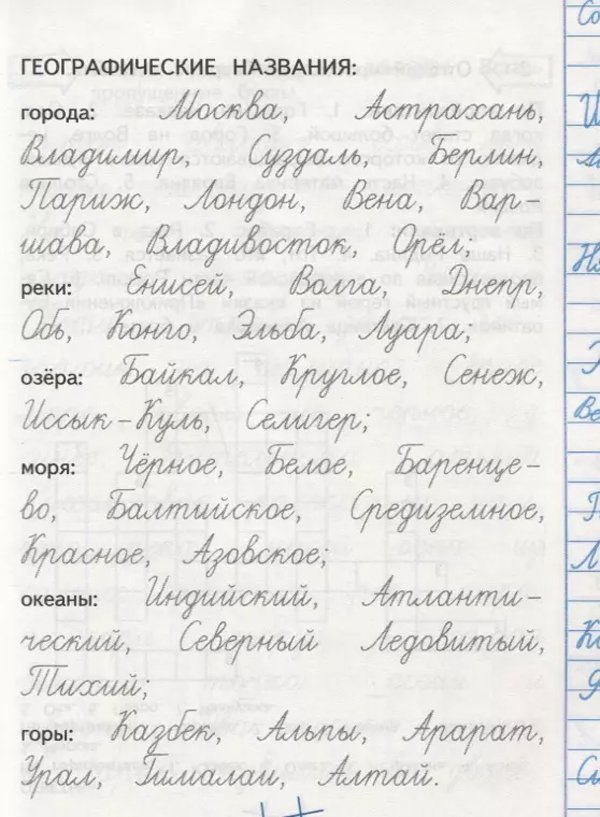 ГЕОГРАФИЧЕСКИЕ НАЗВАНИЯ:
города: Москва, Астрахань,
Владимир, Суздаль, Берлин,
Париж, Лондон, Вена, Вар-
шава, Владивосток, Орёл;
реки: Енисей, Волга, Днепр,
Обь, Конго, Эльба, Луара;
озёра: Байкал, Круглое, Сенеж,
Иссык-Куль, Селигер;
моря: Чёрное, Белое, Баренце-
во, Балтийское, Средиземное,
Красное, Азовское;
океаны: Индийский, Атланти-
ческий, Северный Ледовитый,
Тихий;
горы: Казбек, Альпы, Арарат,
Урал, Гималаи, Алтай.